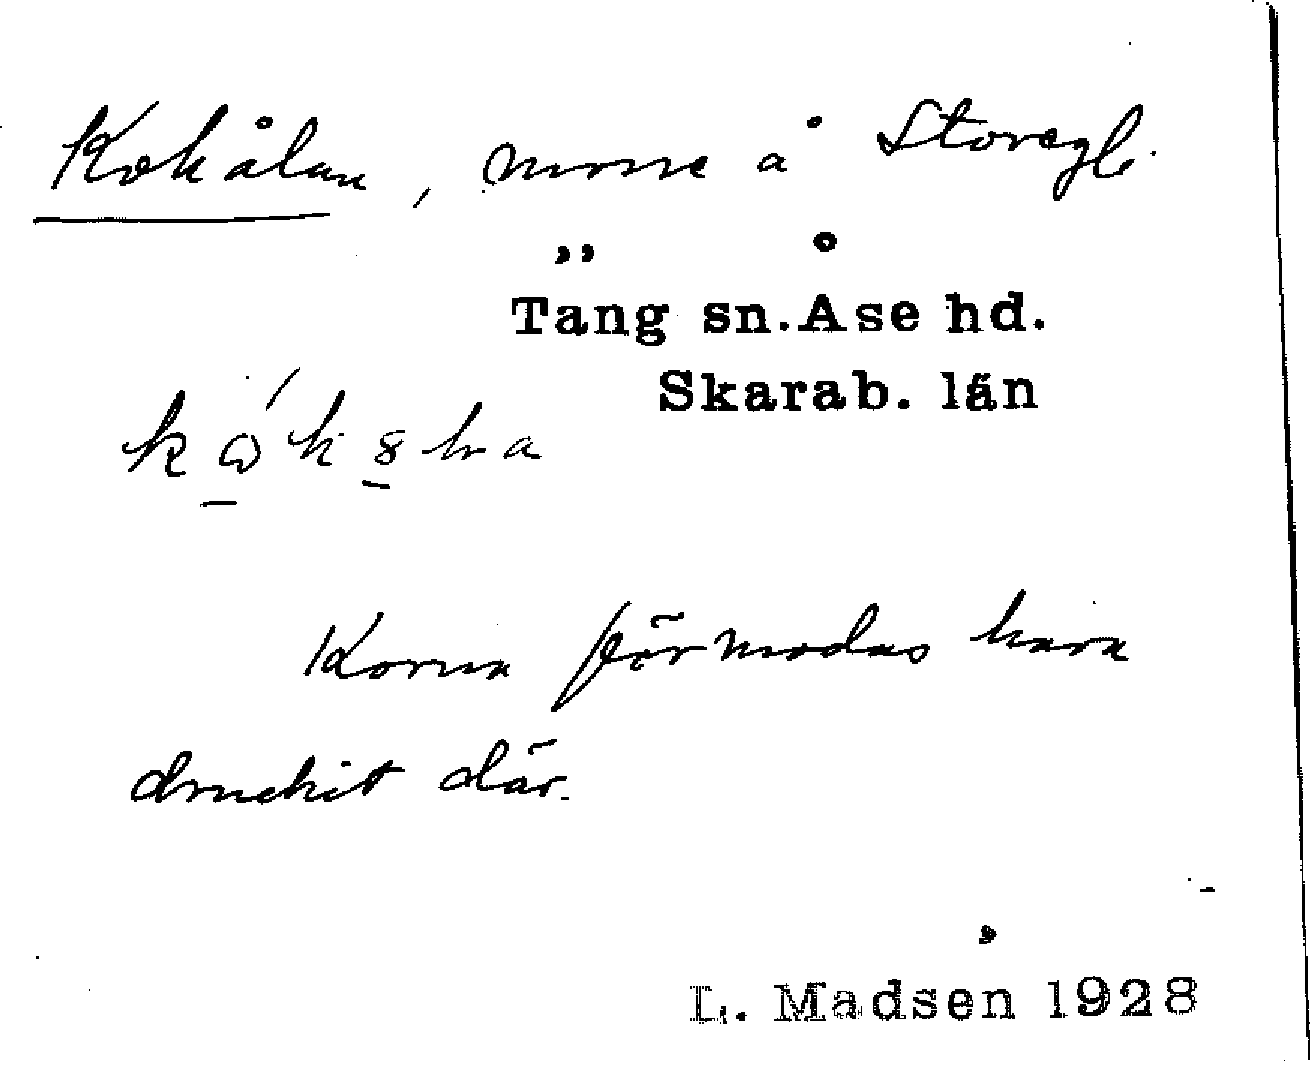 Kohålan, mosse å Storegb.
Täng sn. Åse hd.
Skarab. län
Korna förmodas hava
druckit där.
L. Madsén 1928